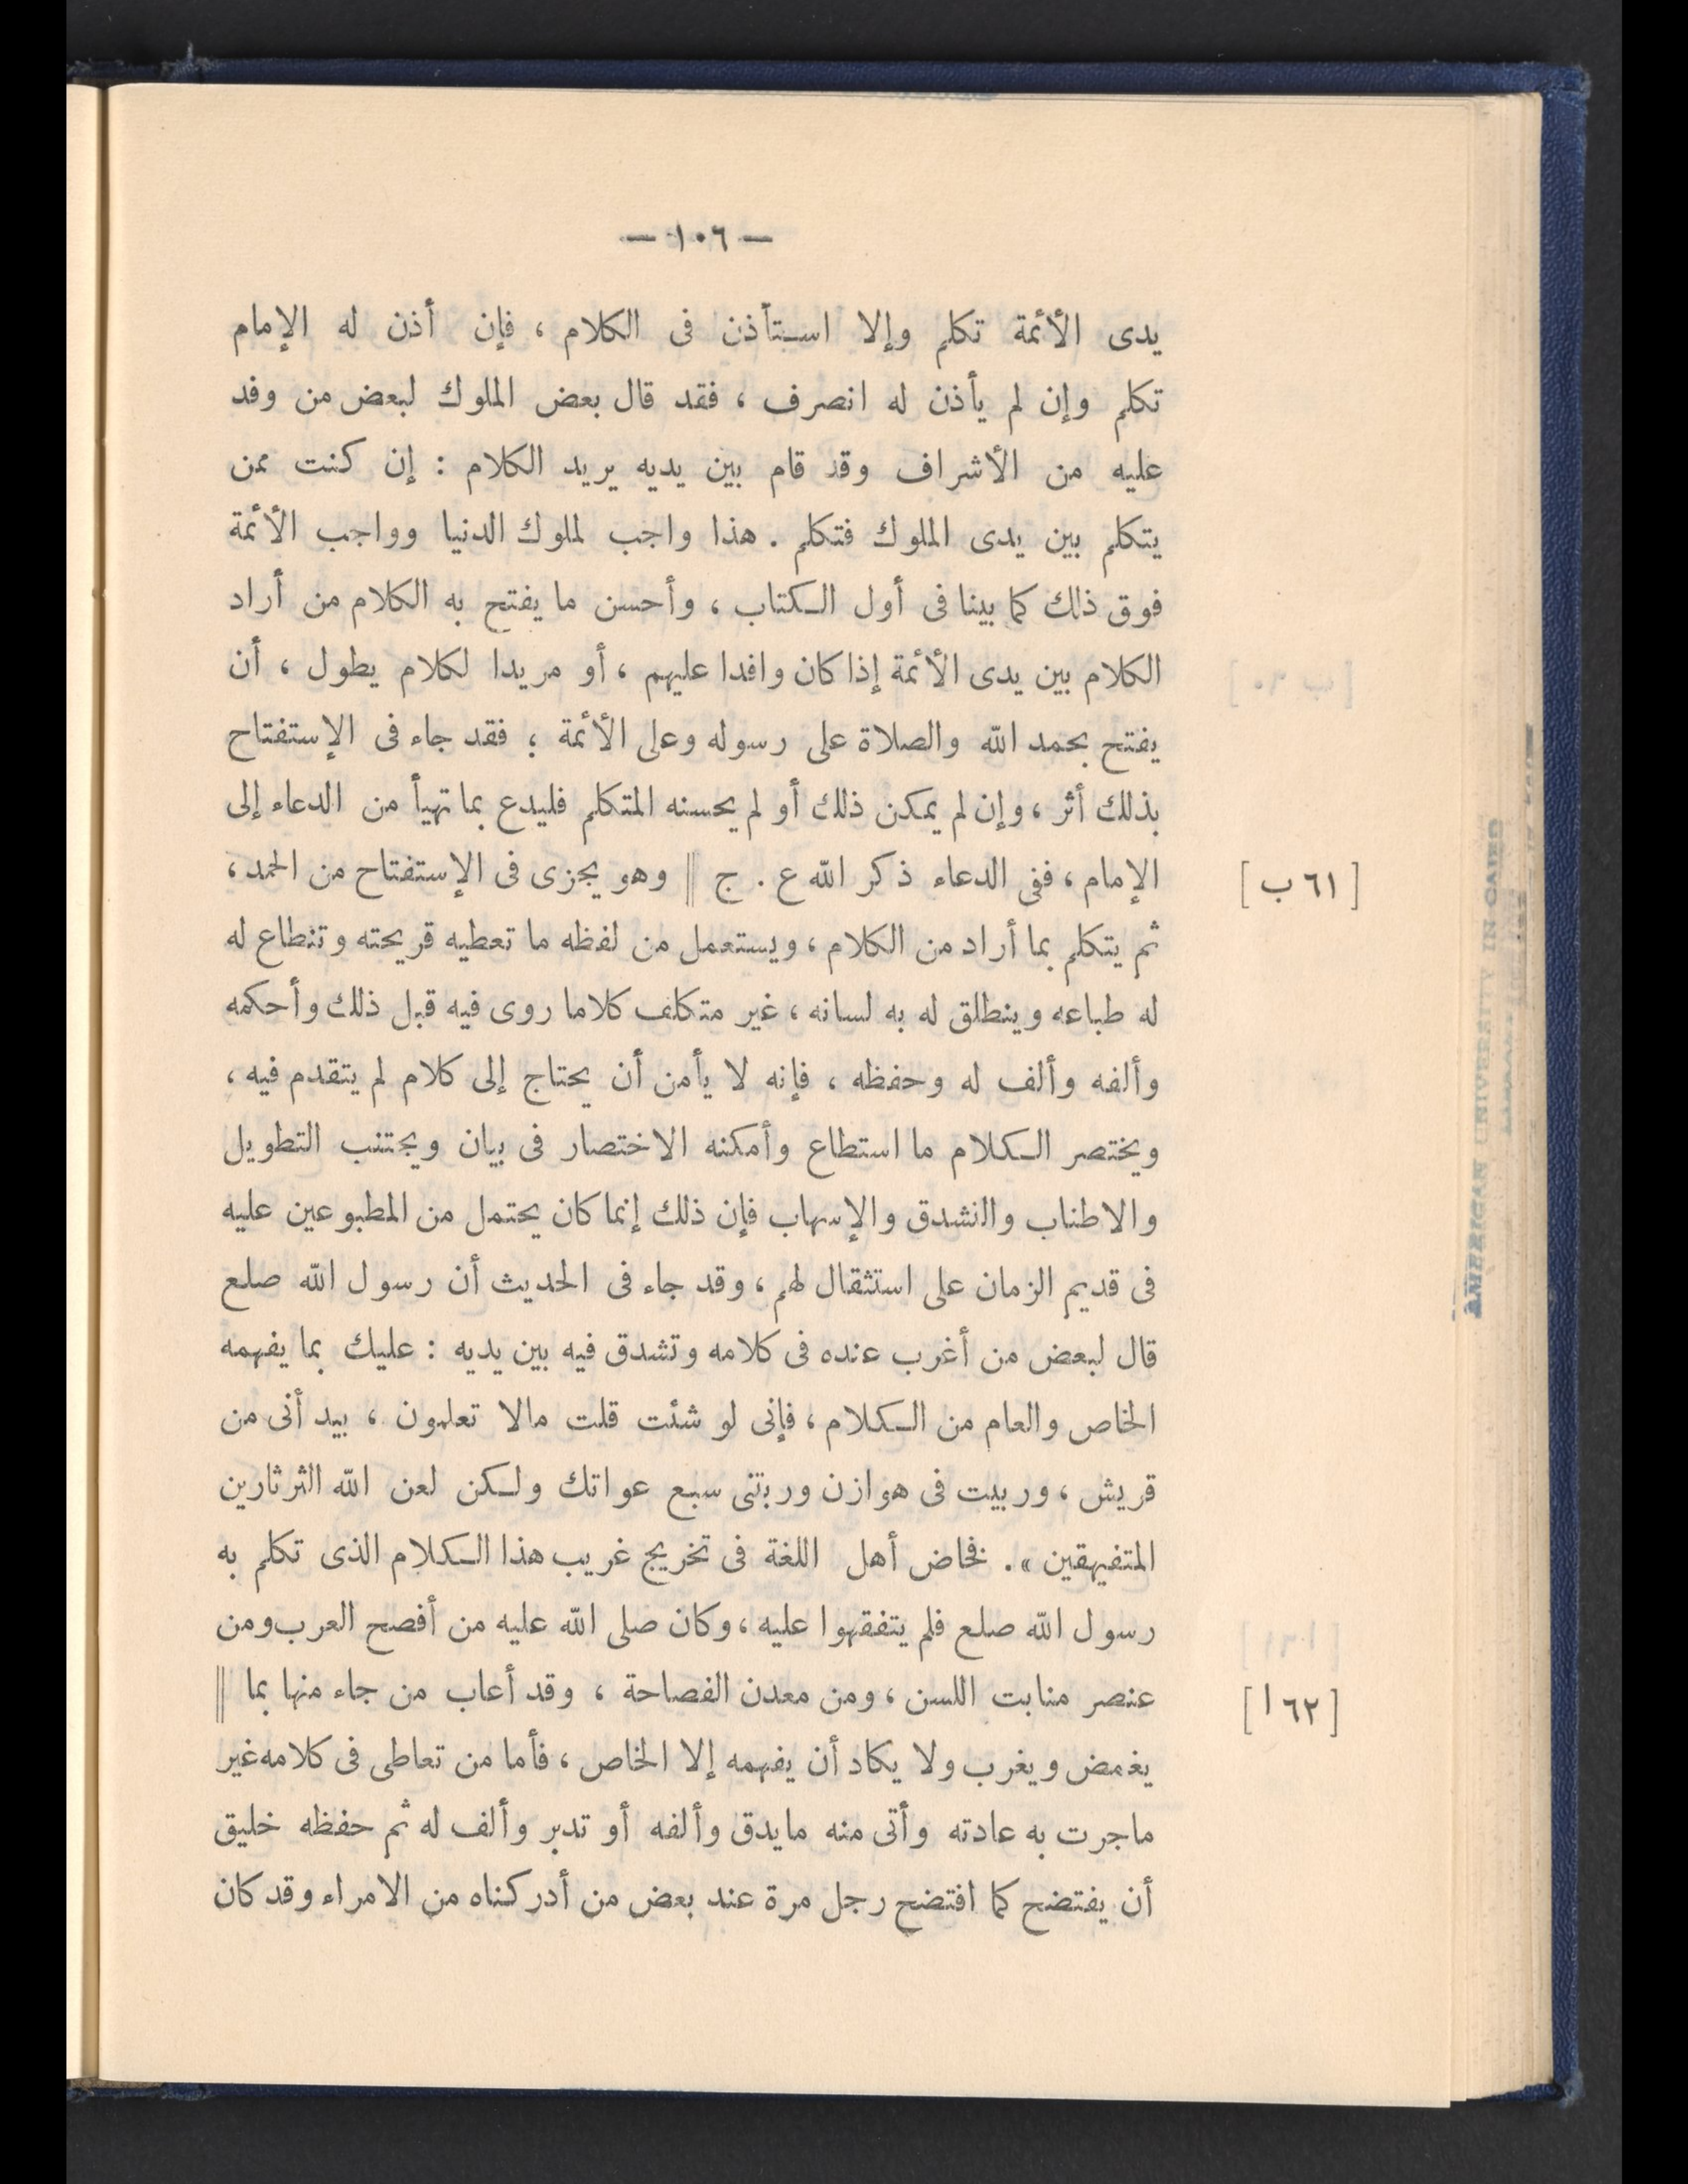 — ١٠٦ —
يدى الأئمة تكلم وإلا استأذن فى الكلام ، فإن أذن له الإمام
تكلم وإن لم يأذن له انصرف ، فقد قال بعض الملوك لبعض من وفد
عليه من الأشراف وقد قام بين يديه يريد الكلام : إن كنت ممن
يتكلم بين يدى الملوك فتكلم . هذا واجب لملوك الدنيا وواجب الأئمة
فوق ذلك كما بينا فى أول الكتاب ، وأحسن ما يفتح به الكلام من أراد
الكلام بين يدى الأئمة إذا كان وافدا عليهم ، أو مريدا لكلام يطول ، أن
يفتح بحمد الله والصلاة على رسوله وعلى الأئمة ؛ فقد جاء فى الإستفتاح
بذلك أثر ، وإن لم يمكن ذلك أو لم يحسنه المتكلم فليدع بما تهيأ من الدعاء إلى
الإمام ، ففى الدعاء ذكر الله ع . ج || وهو يجزى فى الإستفتاح من الحمد ،
[ ٦١ ب ]
ثم يتكلم بما أراد من الكلام ، ويستعمل من لفظه ما تعطيه قريحته وتنطاع له
له طباعه وينطلق له به لسانه ، غير متكلف كلاما روى فيه قبل ذلك وأحكمه
وألفه وألف له وحفظه ، فإنه لا يأمن أن يحتاج إلى كلام لم يتقدم فيه ،
ويختصر الكلام ما استطاع وأمكنه الاختصار فى بيان ويجتنب التطويل
والاطناب والنشدق والإسهاب فإن ذلك إنما كان يحتمل من المطبوعين عليه
فى قديم الزمان على استثقال لهم ، وقد جاء فى الحديث أن رسول الله صلع
قال لبعض من أغرب عنده فى كلامه وتشدق فيه بين يديه : عليك بما يفهمه
الخاص والعام من الكلام ، فإنى لو شئت قلت مالا تعلمون ، بيد أنى من
قريش ، وربيت فى هوازن وربتنى سبع عواتك ولكن لعن الله الثرثارين
المتفيهقين » . فخاض أهل اللغة فى تخريج غريب هذا الكلام الذى تكلم به
رسول الله صلع فلم يتفقهوا عليه ، وكان صلى الله عليه من أفصح العرب ومن
عنصر منابت اللسن ، ومن معدن الفصاحة ، وقد أعاب من جاء منها بما ||
[ ٦٢ ا ]
يغمض ويغرب ولا يكاد أن يفهمه إلا الخاص ، فأما من تعاطى فى كلامه غير
ماجرت به عادته وأتى منه مايدق وألفه أو تدبر وألف له ثم حفظه خليق
أن يفتضح كما افتضح رجل مرة عند بعض من أدركناه من الامراء وقد كان
AMERICAN UNIVERSITY IN CAIRO